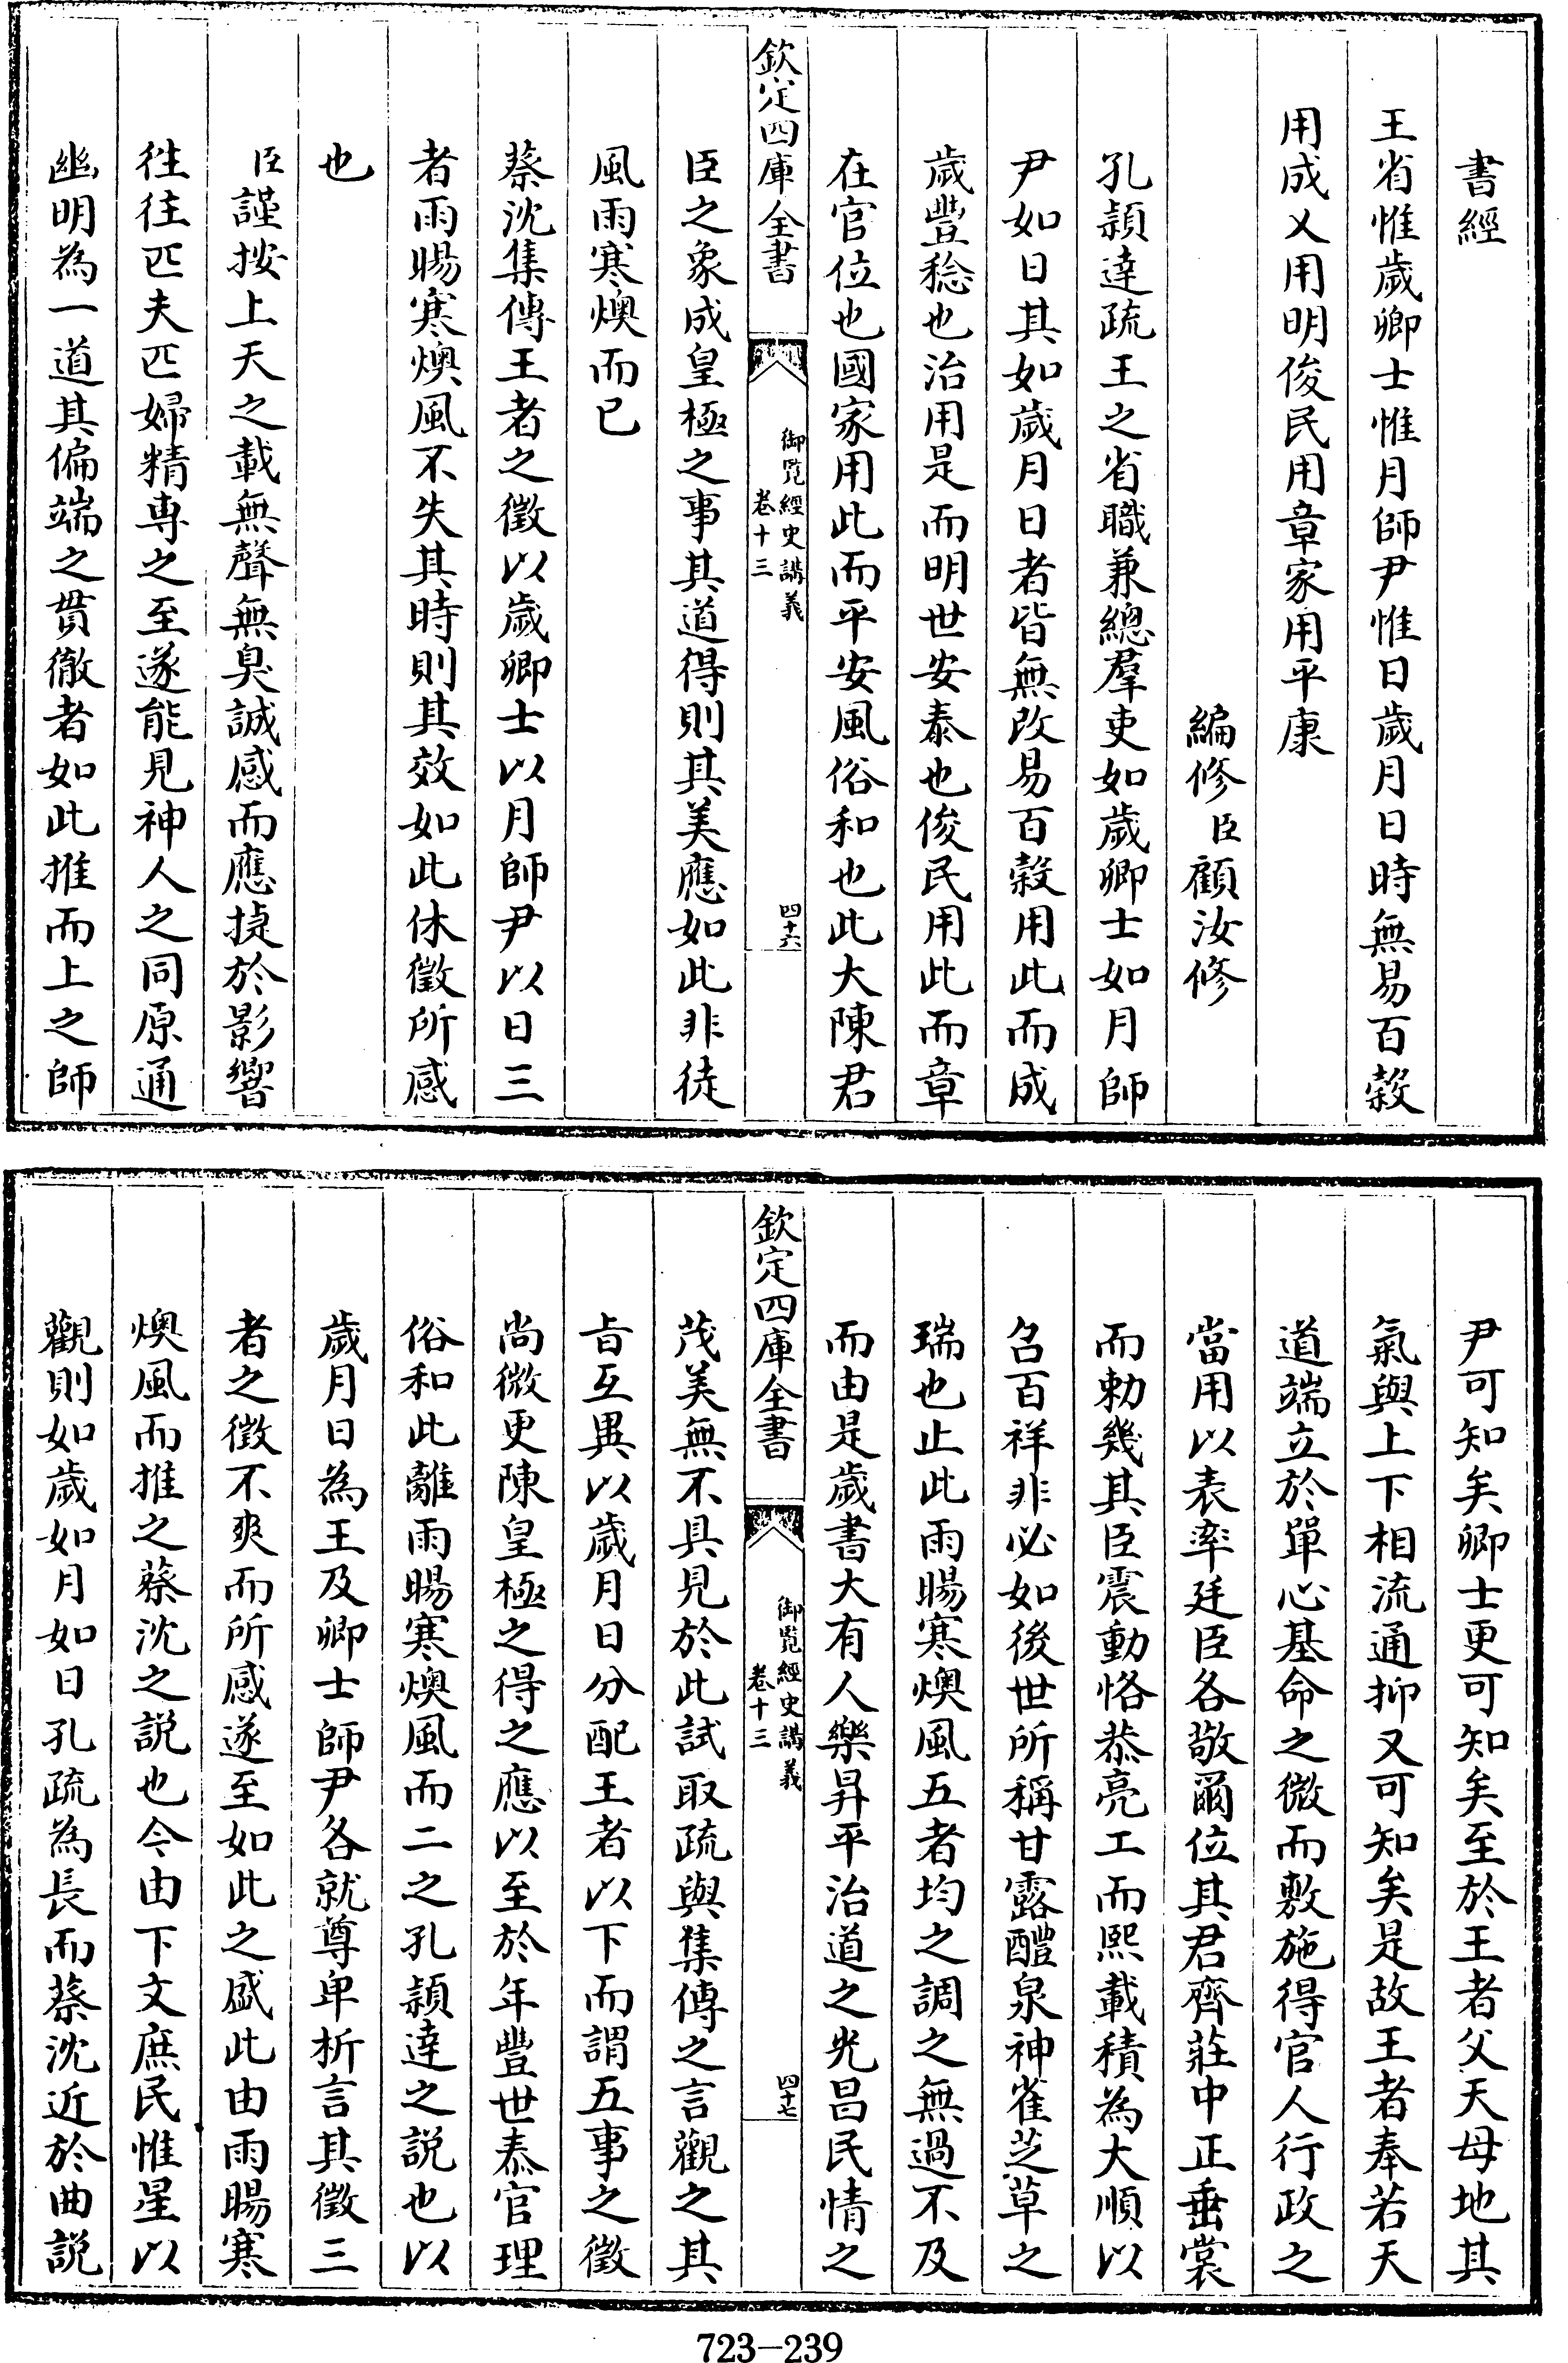 書經
王省惟歲卿士惟月師尹惟日歲月日時無易百穀
用成乂用明俊民用章家用平康
編修臣顧汝修
孔穎達疏王之省職兼總羣吏如歲卿士如月師
尹如日其如歲月日者皆無改易百穀用此而成
歲豐稔也治用是而明世安泰也俊民用此而章
在官位也國家用此而平安風俗和也此大陳君
欽定四庫全書
御覽經史講義
卷十三
四十六
臣之象成皇極之事其道得則其美應如此非徒
風雨寒燠而已
蔡沈集傳王者之徵以歲卿士以月師尹以日三
者雨暘寒燠風不失其時則其效如此休徵所感
也
臣謹按上天之載無聲無臭誠感而應捷於影響
徃往匹夫匹婦精專之至遂能見神人之同原通
幽明為一道其偏端之貫徹者如此推而上之師
尹可知矣卿士更可知矣至於王者父天母地其
氣與上下相流通抑又可知矣是故王者奉若天
道端立於單心基命之微而敷施得官人行政之
當用以表率廷臣各敬爾位其君齊莊中正垂裳
而勅幾其臣震動恪恭亮工而熙載積為大順以
召百祥非必如後世所稱甘露醴泉神雀芝草之
瑞也止此雨暘寒燠風五者均之調之無過不及
而由是歲書大有人樂昇平治道之光昌民情之
欽定四庫全書
御覽經史講義
卷十三
四十七
茂美無不具見於此試取疏與集傳之言觀之其
㫖互異以歲月日分配王者以下而謂五事之徵
尚微更陳皇極之得之應以至於年豐世泰官理
俗和此離雨暘寒燠風而二之孔穎達之説也以
歲月日為王及卿士師尹各就尊卑析言其徵三
者之徵不爽而所感遂至如此之盛此由雨暘寒
燠風而推之蔡沈之説也今由下文庶民惟星以
觀則如歲如月如日孔疏為長而蔡沈近於曲説
723—239